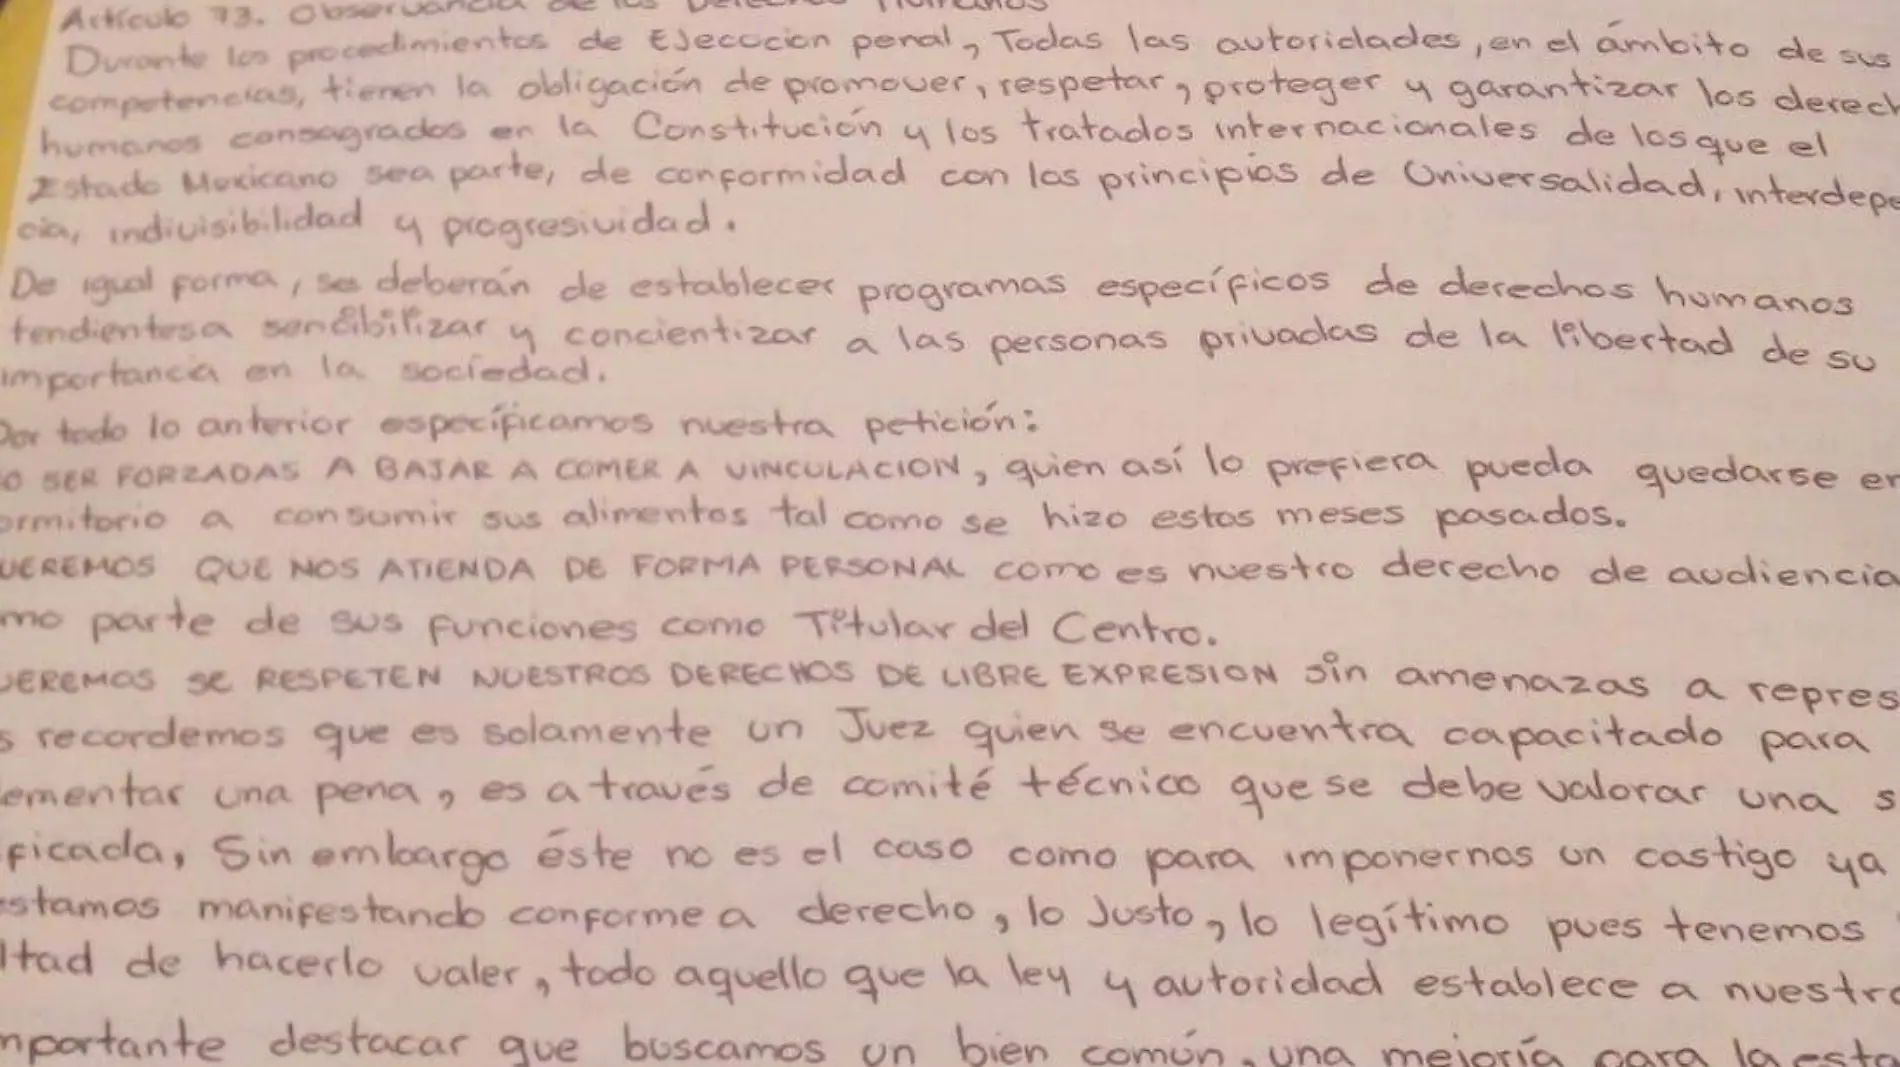 Artículo 73. Observancia de los Derechos Humanos
Durante los procedimientos de Ejecucion penal, Todas las autoridades, en el ámbito de sus
competencias, tienen la obligación de promover, respetar, proteger y garantizar los derech
humanos consagrados en la Constitución y los tratados internacionales de los que el
Estado Mexicano sea parte, de conformidad con los principios de Universalidad, interdepe
cia, indivisibilidad y progresividad.
De igual forma, se deberán de establecer programas específicos de derechos humanos
tendientes a sensibilizar y concientizar a las personas privadas de la libertad de su
importancia en la sociedad.
Por todo lo anterior específicamos nuestra petición:
O SER FORZADAS A BAJAR A COMER A VINCULACION, quien así lo prefiera pueda quedarse en
ormitorio a consumir sus alimentos tal como se hizo estos meses pasados.
UEREMOS QUE NOS ATIENDA DE FORMA PERSONAL como es nuestro derecho de audiencia
mo parte de sus funciones como Titular del Centro.
UEREMOS SE RESPETEN NUESTROS DERECHOS DE LIBRE EXPRESION sin amenazas a repres
s recordemos que es solamente un Juez quien se encuentra capacitado para
ementar una pena, es a través de comité técnico que se debe valorar una s
ficada, Sin embargo éste no es el caso como para imponernos un castigo ya
stamos manifestando conforme a derecho, lo Justo, lo legítimo pues tenemos
ltad de hacerlo valer, todo aquello que la ley y autoridad establece a nuestro
mportante destacar que buscamos un bien común, una mejoría para la esta